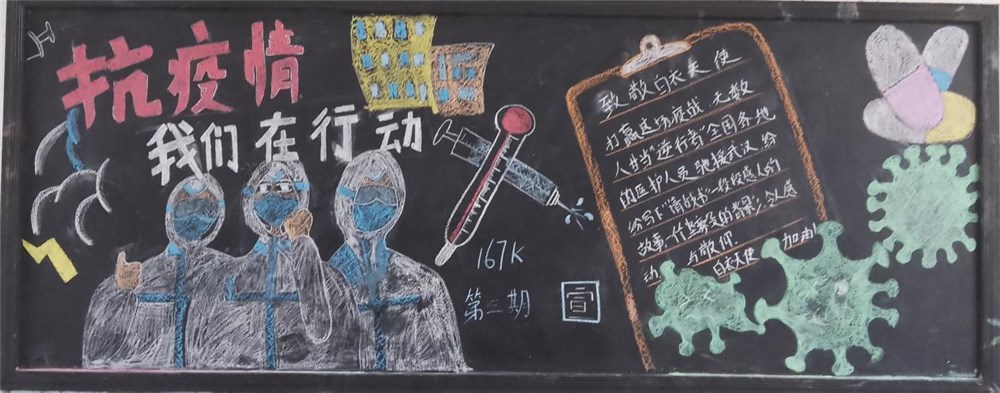 抗疫情
我们在行动
致敬白衣天使
打赢这场疫战,无数
人当“逆行者”全国各地
的医护人员驰援武汉,纷
纷写下“请战书”一段段感人的
故事,一件件
的背影,令人感
动 与敬仰
白衣天使
加油!
167K
第三期
宣